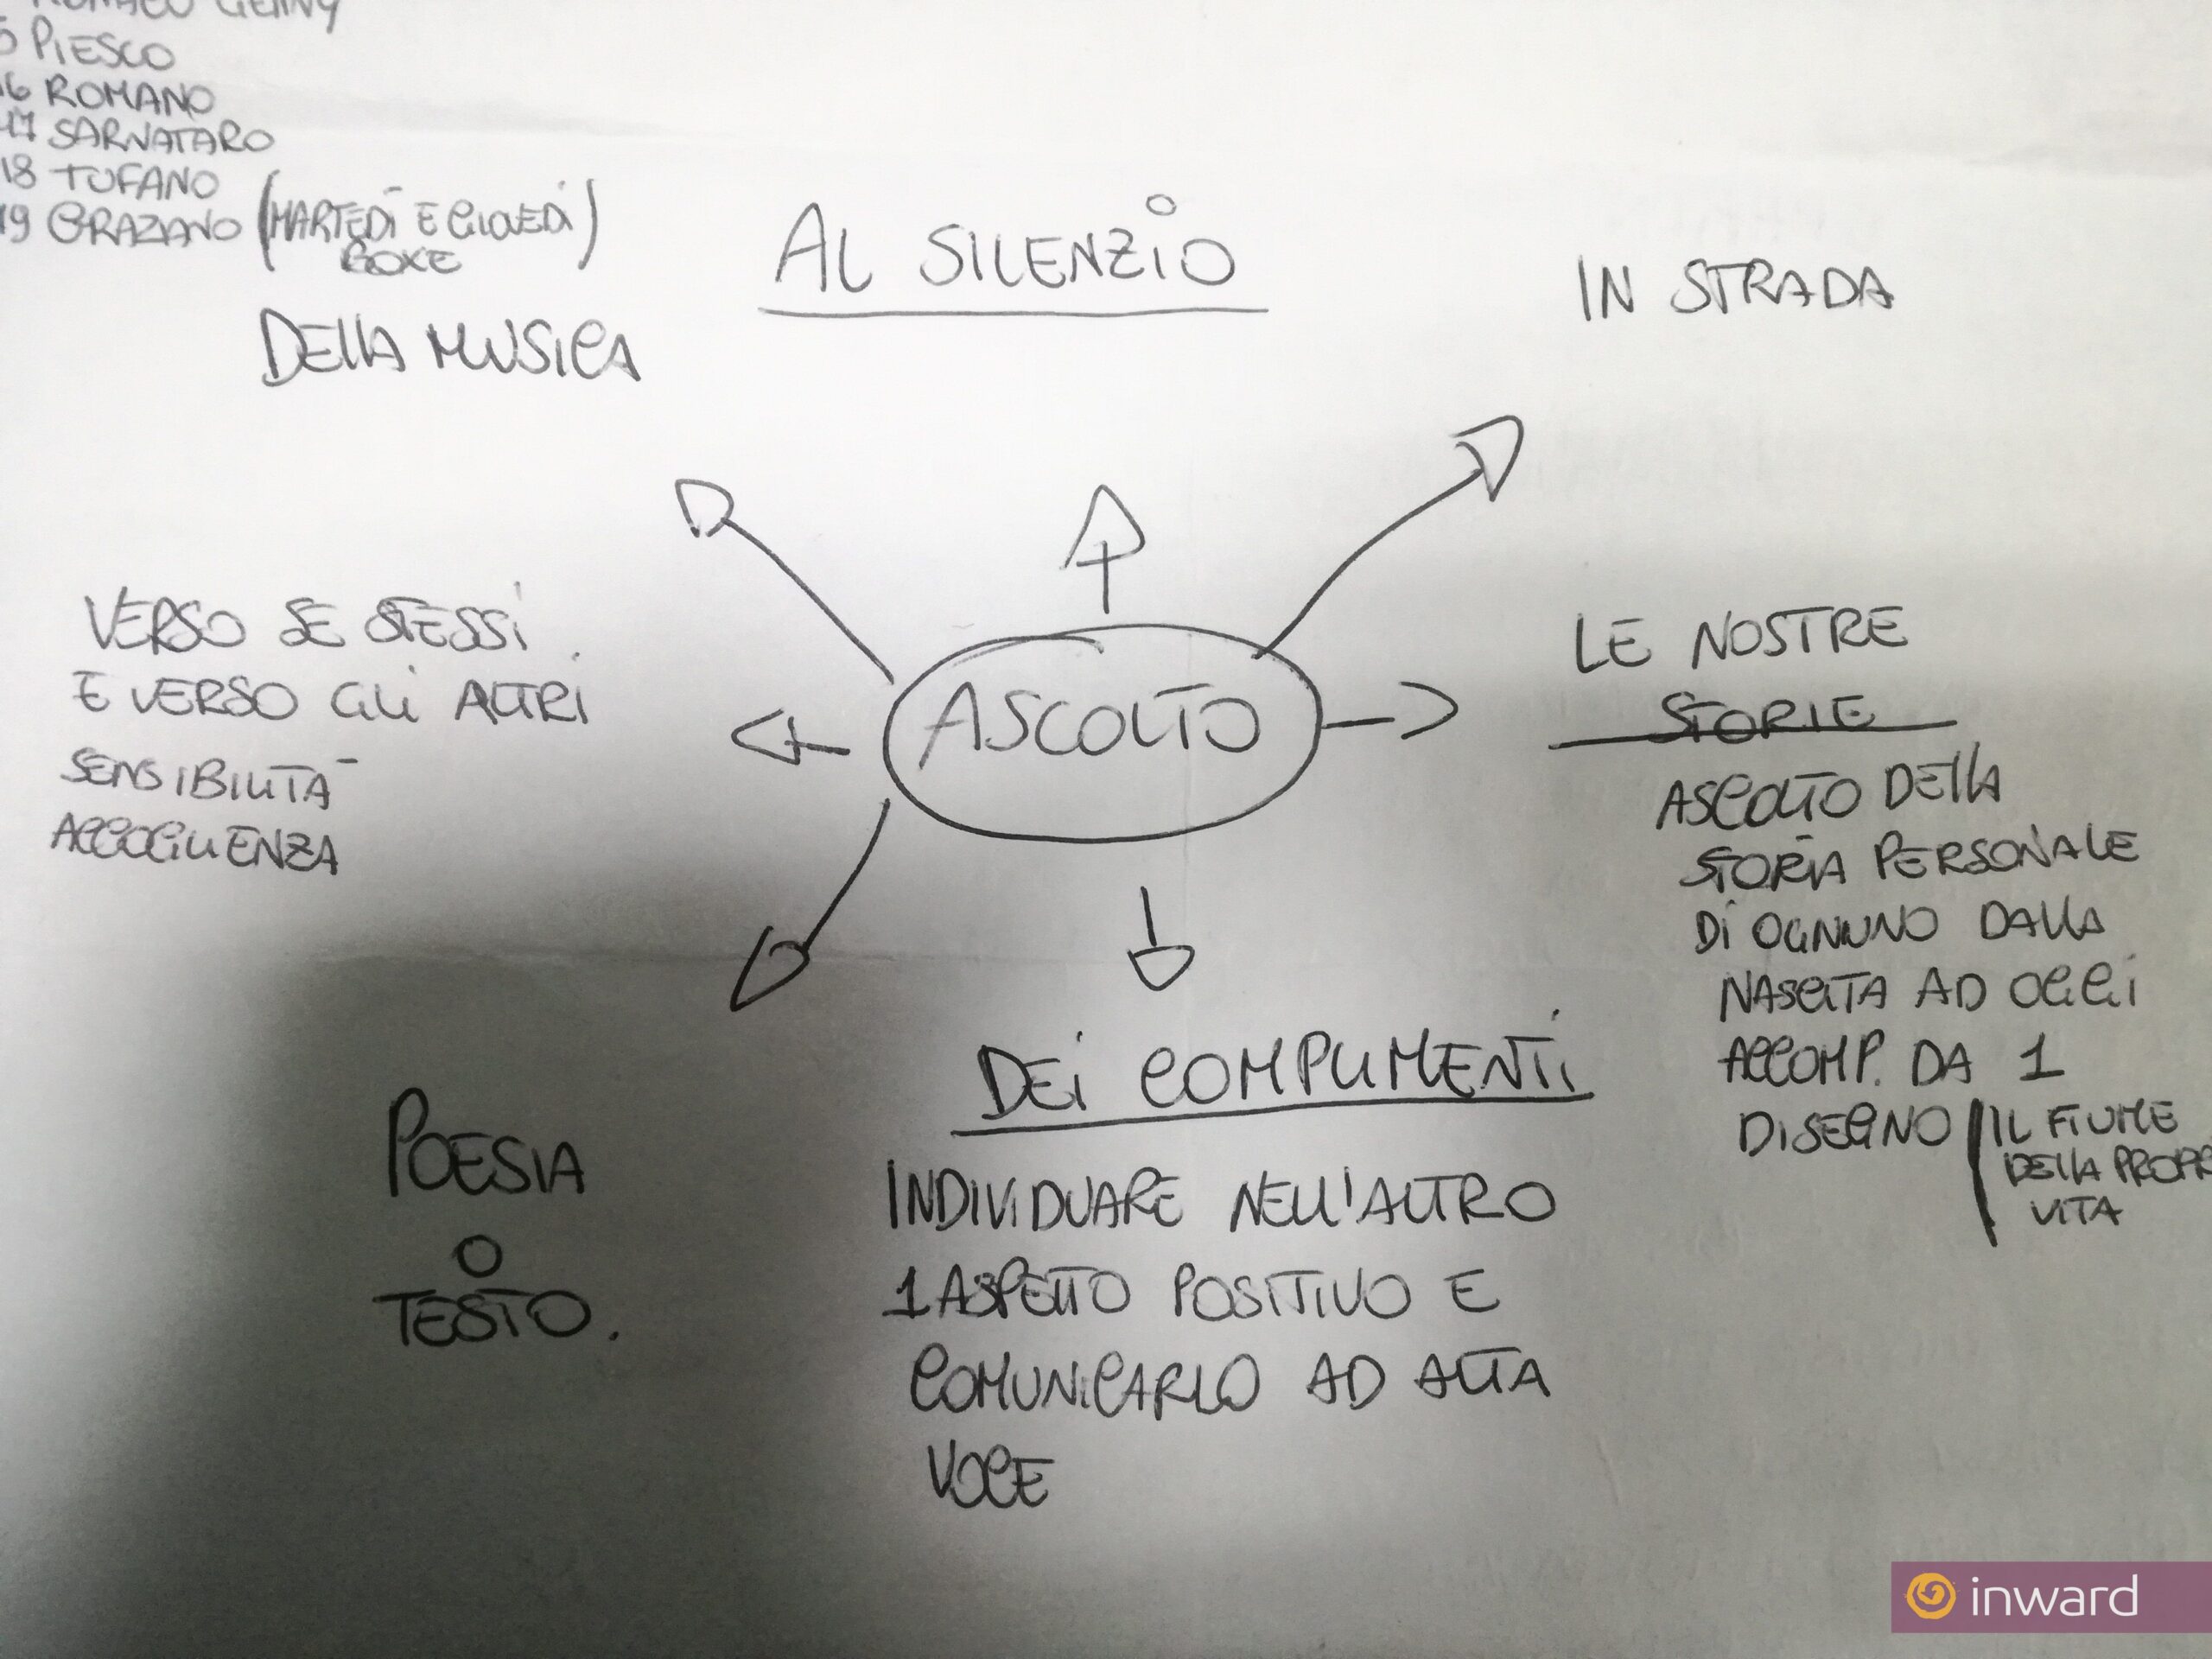 ROMAEO GENNY
5 PIESCO
16 ROMANO
17 SARNATARO
18 TUFANO
19 GRAZIANO (MARTEDÌ E GIOVEDÌ)
BOXE
DELLA MUSICA
AL SILENZIO
IN STRADA
VERSO SE STESSI
E VERSO GLI ALTRI
SENSIBILITÀ
ACCOGLIENZA
ASCOLTO
LE NOSTRE
STORIE
ASCOLTO DELLA
STORIA PERSONALE
DI OGNUNO DALLA
NASCITA AD OGGI
ACCOMP. DA 1
DISEGNO
IL FIUME
DELLA PROPR
VITA
POESIA
O
TESTO.
DEI COMPLIMENTI
INDIVIDUARE NELL'ALTRO
1 ASPETTO POSITIVO E
COMUNICARLO AD ALTA
VOCE
inward